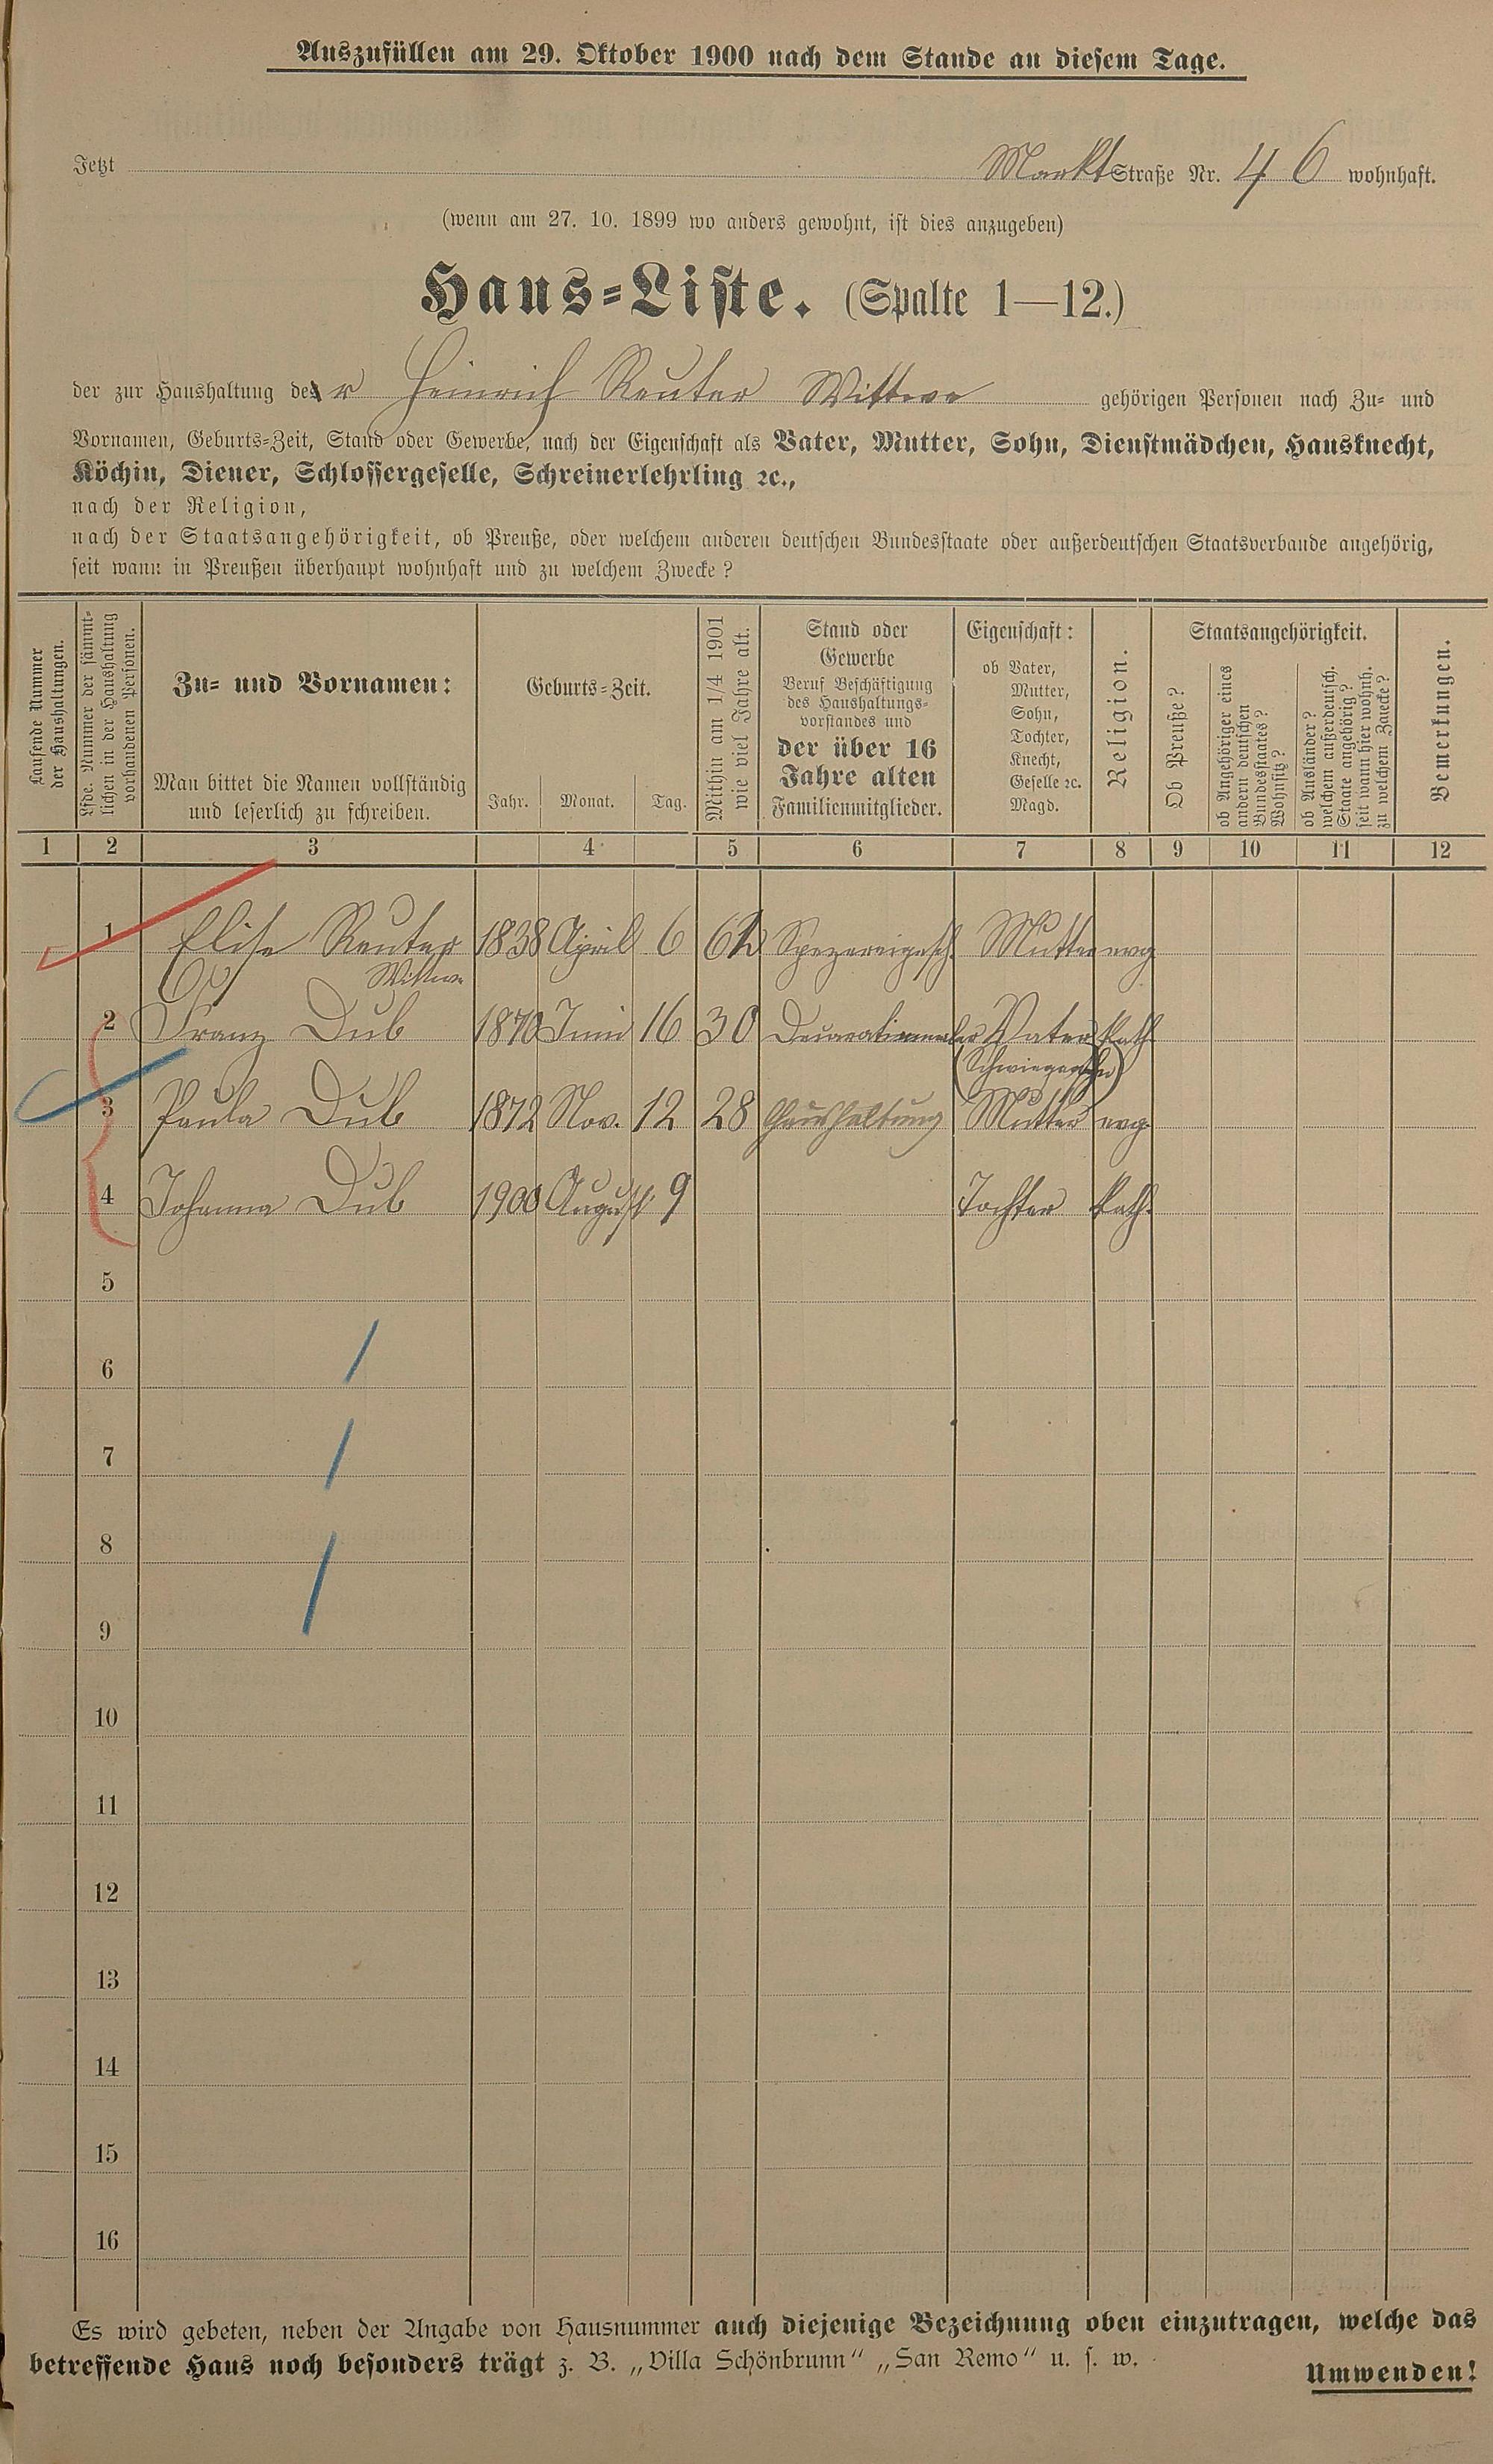 Auszufüllen am 29. Oktober 1900 nach dem Stande an diesem Tage.
Jetzt Markt Straße Nr. 46 wohnhaft.
(wenn am 27. 10. 1899 wo anders gewohnt, ist dies anzugeben)
Haus-Liste. (Spalte 1—12.)
der zur Haushaltung der Heinrich Reuter Wittwe gehörigen Personen nach Zu- und
Vornamen, Geburts-Zeit, Stand oder Gewerbe, nach der Eigenschaft als Vater, Mutter, Sohn, Dienstmädchen, Hausknecht,
Köchin, Diener, Schlossergeselle, Schreinerlehrling ꝛc.,
nach der Religion,
nach der Staatsangehörigkeit, ob Preuße, oder welchem anderen deutschen Bundesstaate oder außerdeutschen Staatsverbande angehörig,
seit wann in Preußen überhaupt wohnhaft und zu welchem Zwecke?
Laufende Nummer
der Haushaltungen.
Lfde. Nummer der sämmt-
lichen in der Haushaltung
vorhandenen Personen.
Zu- und Vornamen:
Man bittet die Namen vollständig
und leserlich zu schreiben.
Geburts-Zeit.
Jahr. Monat. Tag.
Mithin am 1/4 1901
wie viel Jahre alt.
Stand oder
Gewerbe
Beruf Beschäftigung
des Haushaltungs-
vorstandes und
der über 16
Jahre alten
Familienmitglieder.
Eigenschaft:
ob Vater,
Mutter,
Sohn,
Tochter,
Knecht,
Geselle ꝛc.
Magd.
Religion.
Staatsangehörigkeit.
Ob Preuße?
ob Angehöriger eines
andern deutschen
Bundesstaates?
Wohnsitz?
ob Ausländer?
welchem außerdeutsch.
Staate angehörig?
seit wann hier wohnh.
zu welchem Zwecke?
Bemerkungen.
1 2 3 4 5 6 7 8 9 10 11 12
1 Elise Reuter 1838 April 6 62 Spezereigesch. Mutter evg
Wittwe
2 Franz Dub 1870 Juni 16 30 Decorationmaler Vater kath.
(Schwiegersohn)
3 Paula Dub 1872 Nov. 12 28 Haushaltung Mutter evg.
4 Johanna Dub 1900 August 9 Tochter kath.
5
6
7
8
9
10
11
12
13
14
15
16
Es wird gebeten, neben der Angabe von Hausnummer auch diejenige Bezeichnung oben einzutragen, welche das
betreffende Haus noch besonders trägt z. B. „Villa Schönbrunn“ „San Remo“ u. s. w.
Umwenden!